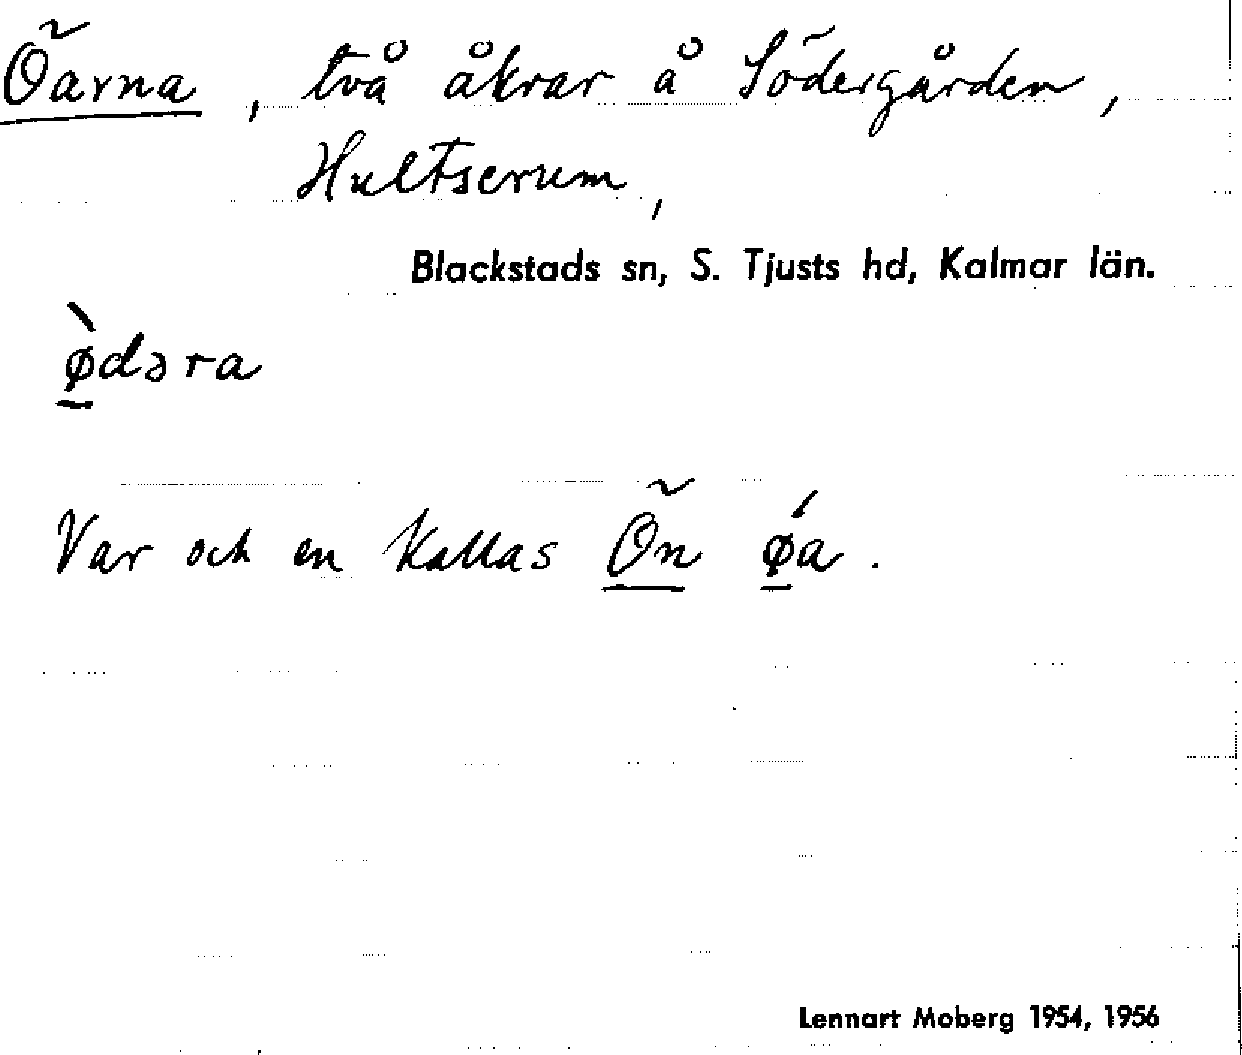 Öarna, två åkrar å Södergården,
Hultserum,
Blackstads sn, S. Tjusts hd, Kalmar län.
ø̠̀dəra
Var och en kallas Ön ǿ̠a.
Lennart Moberg 1954, 1956